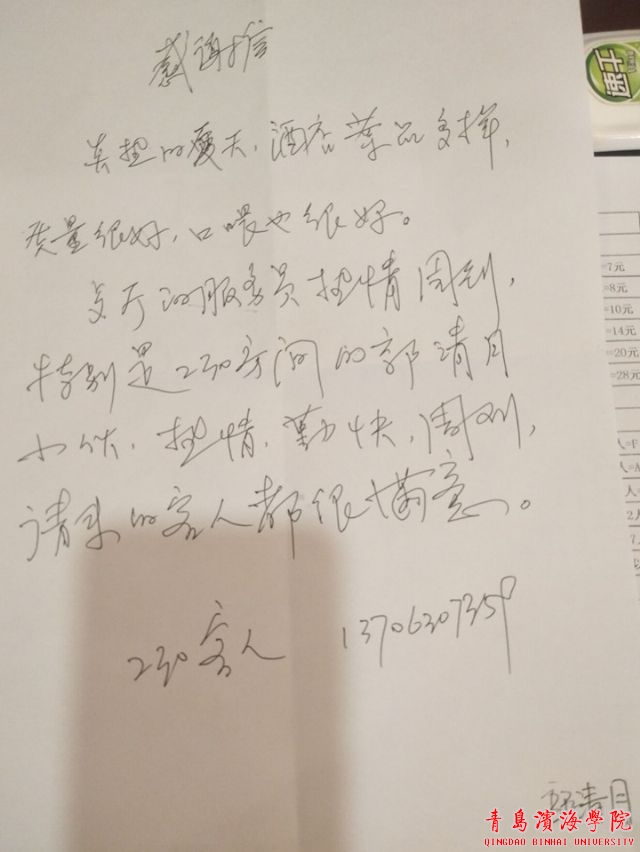 感谢信
炎热的夏天,酒店菜品多样,
质量很好,口味也很好。
餐厅的服务员热情周到,
特别是230房间的郭清月
小伙,热情,勤快,周到,
请来的客人都很满意。
230客人 13706307359
郭清月
速士
=7元
=8元
=10元
=14元
=20元
=28元
青岛滨海学院
QINGDAO BINHAI UNIVERSITY